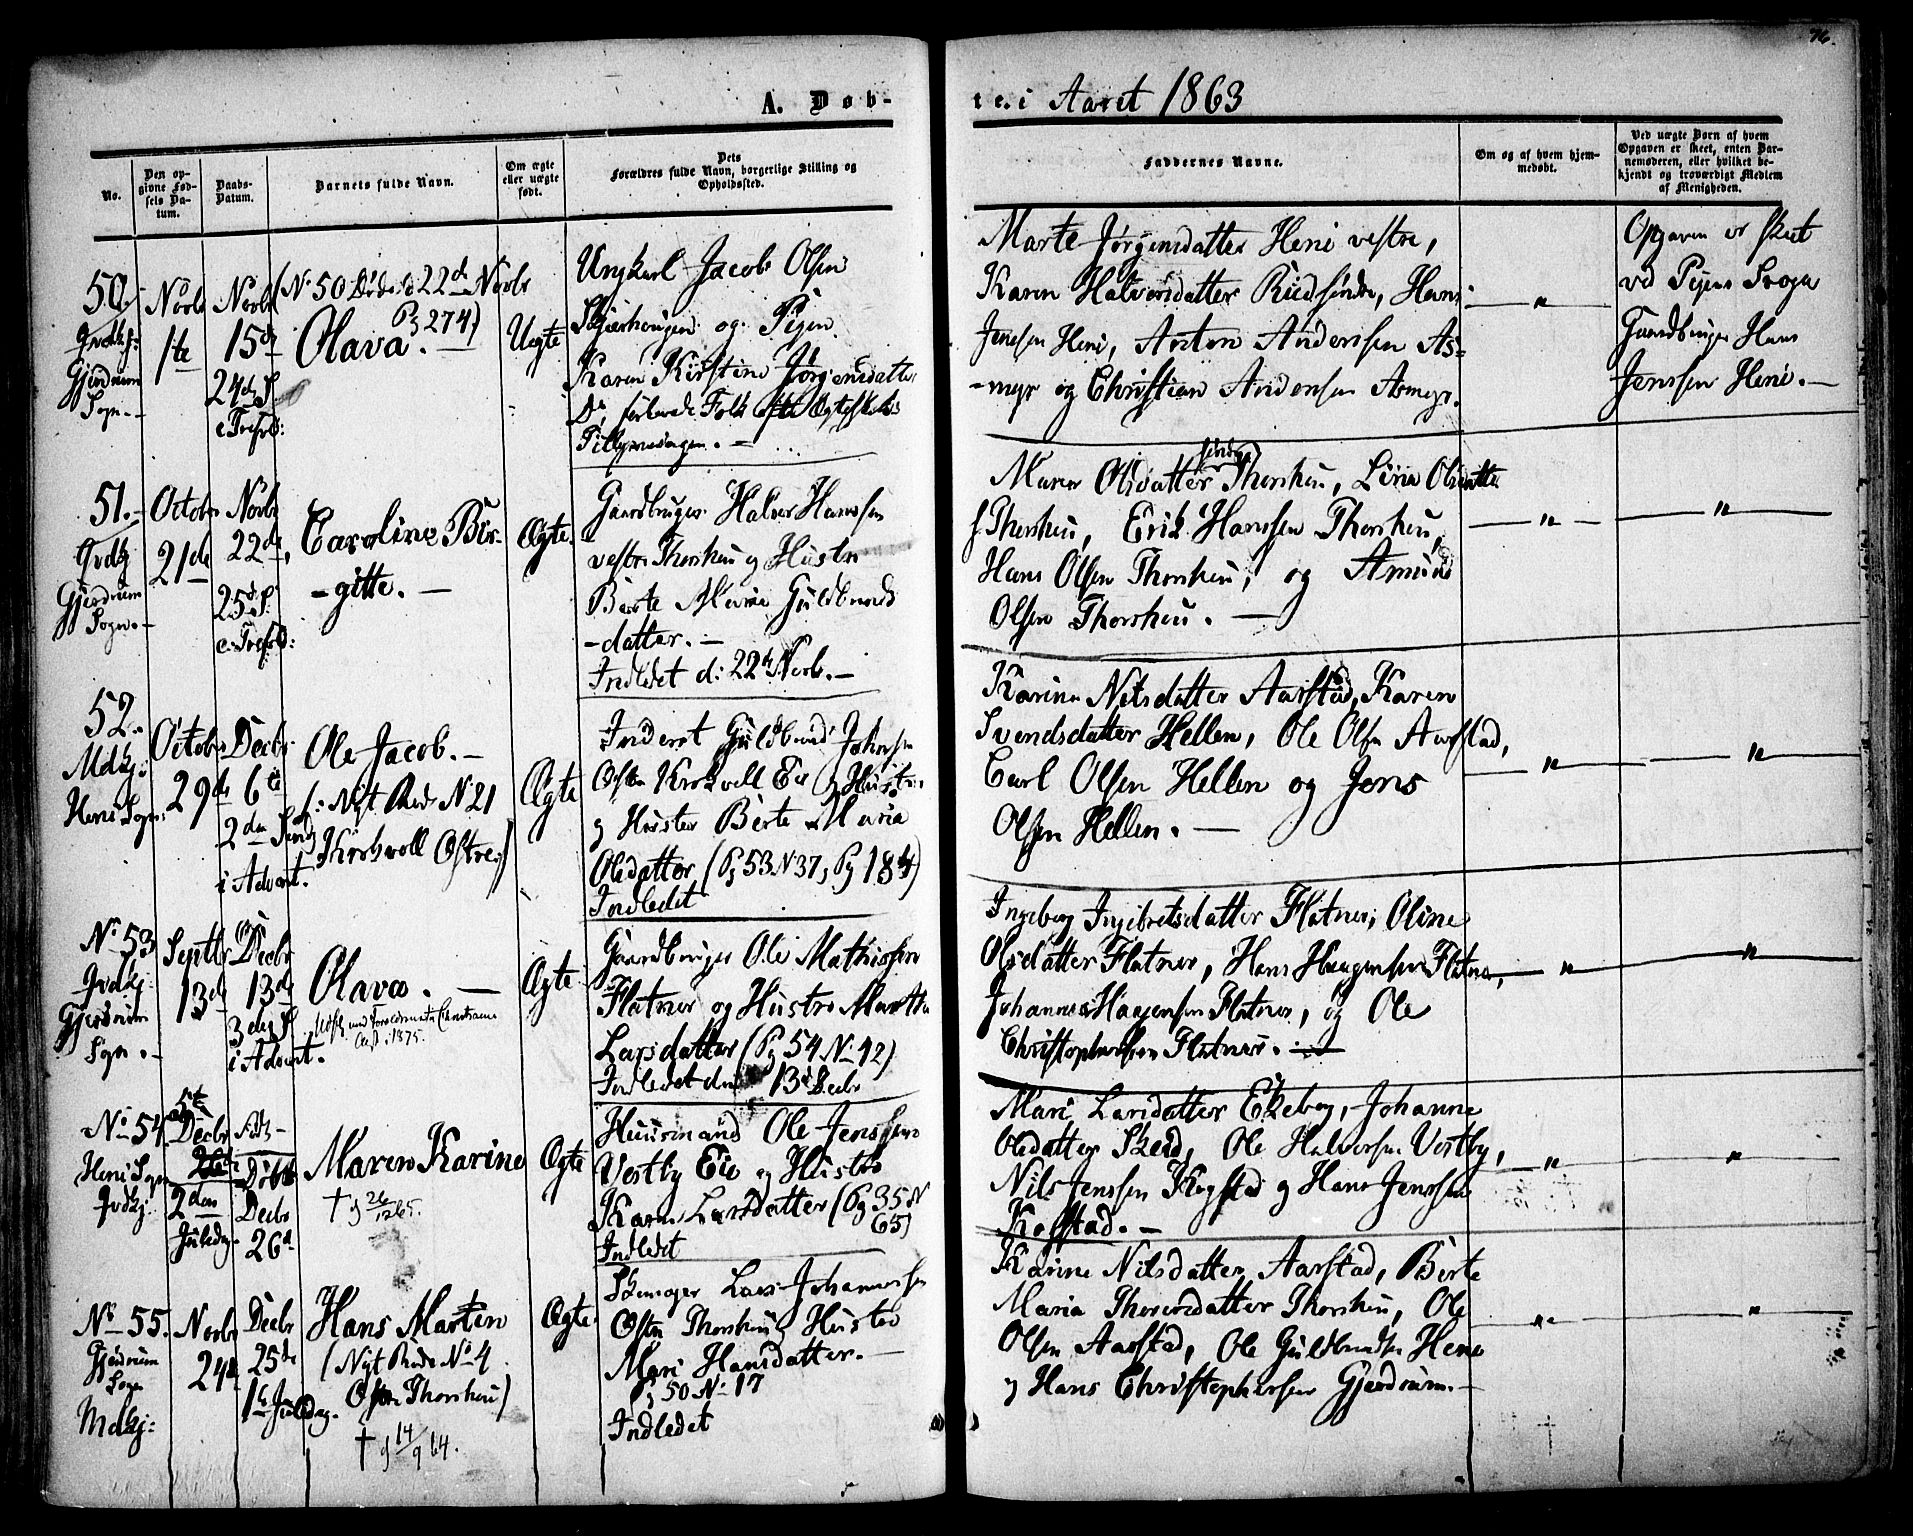 76.
A. Døb-
te. i Aaret 1863
No.
Den op-
givne Fød-
sels Da-
tum.
Daabs-
Datum.
Barnets fulde Navn.
Om ægte
eller uægte
født.
Dets
Forældres fulde Navn, borgerlige Stilling og
Opholdssted.
Faddernes Navne.
Om og af hvem hjem-
medøbt.
Ved uægte Børn af hvem
Opgaven er skeet, enten Bar-
nemoderen, eller hvilket be-
kjendt og troværdigt Medlem
af Menigheden.
50.
Gjerdrum
Sogn.-
Novbr
1te
Novbr
15de
24de S.
e. Trefold:
(No 50 Døde d 22de Novbr
Pg 274)
Olava. -
Uægte
Ungkarl Jacob Olsen
og Pigen
Karen Kirstine Jørgensdatter
Marte Jørgensdatter Heni vestre,
Karen Halvorsdatter Rudsindre, Hans
Jensen Heni, Anton Andersen As-
-myr og Christian Andersen Asmyr.
"
Opgaven er skeet
ved Pigens
Gaardbruger Hans
Jenssen Heni. -
51.-
Gjerdrum
Sogn.-
Octobr
21de
Novbr
22de,
25de S.
e. Trefold:
Caroline Bir-
-gitte. -
Ægte.
Gaardbruger Halvor Hanssen
vestre Thorshau og Hustro
Berte Marie Guldbrands
-datter. -
Indledet d: 22de Novb. -
Maren Olsdatter søndre Thorsheu, Lina Olsdatter
s. Thorsheu, Erik Hanssen Thorsheu,
Hans Olsen Thorsheu, og Amund
Olsen Thorsheu. -
"
"
52.
Mdkj:
Heni Sogn:
Octobr
29de
Decbr
6te
2den Sønd
i Advent.
Ole Jacob. -
(: Nyt Rode No 21
Kirkvoll Østre)
Ægte
Inderst Guldbrand Johnsen
Østre Kirkvoll Eie og Hustro
og Hustro Berte Maria
Olsdatter (Pg 53 No 37, Pg 184)
Indledet
Karine Nilsdatter Aarstad, Karen
Svendsdatter Hellen, Ole Olsen Aarstad,
Carl Olsen Hellen og Jens
Olsen Hellen. -
"
"
No 53
Gvdkj:
Gjerdrum
Sogn.-
Septbr
13de
Decbr
13de
3die S
i Advent.
Olava. -
1875.
Ægte
Gaardbruger Ole Mathissen
Flatner og Hustro Marthe
Larsdatter (Pg 54 No 42)
Indledet den 13de Decbr
Ingeborg Ingebretsdatter Flatner, Oline
Olsdatter Flatner, Hans Haagensen Flatner,
Johannes Haagensen Flatner, og Ole
Christophersen Flatner.
"
"
No 54
Heni Sogn
Gvdkj
5te
Decbr
2den
Juledag.
Døbt
Decbr
26d
Maren Karine
† 26/12 65.
Ægte
Huusmand Ole Jenssen
Vestby Eie og Hustro
Karen Larsdatter (Pg 35 No
65)
Indledet
Mari Larsdatter Ekeberg, Johanne
Olsdatter Skerd, Ole Halvorsen Vestby,
Nils Jenssen Kogstad og Hans Jenssen
Kogstad. -
"
"
No 55.
Gjerdrum
Sogn
Mdkj:
Novbr
24d
Decbr
25de
1ste Juledag.
Hans Martin
(Nyt Rode No 4
Østre Thorsheu)
† 14/9 64.
Ægte.
Skomager Lars Johannessen
Østre Thorsheu og Hustro
Mari Hansdatter. -
Pg 50 No 17
Indledet
Karine Nilsdatter Aarstad, Berte
Maria Thoresdatter Thorsheu, Ole
Olsen Aarstad, Ole Guldbrandsen Heni
og Hans Christophersen Gjerdrum. -
"
"